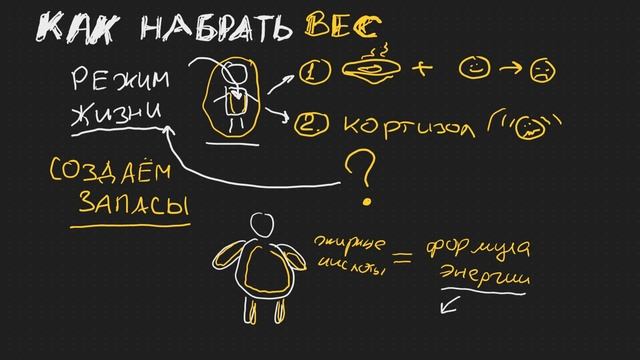 КАК НАБРАТЬ ВЕС
РЕЖИМ
ЖИЗНИ
1 +
2. КОРТИЗОЛ
?
СОЗДАЁМ
ЗАПАСЫ
жирные
кислоты = формула
энергии